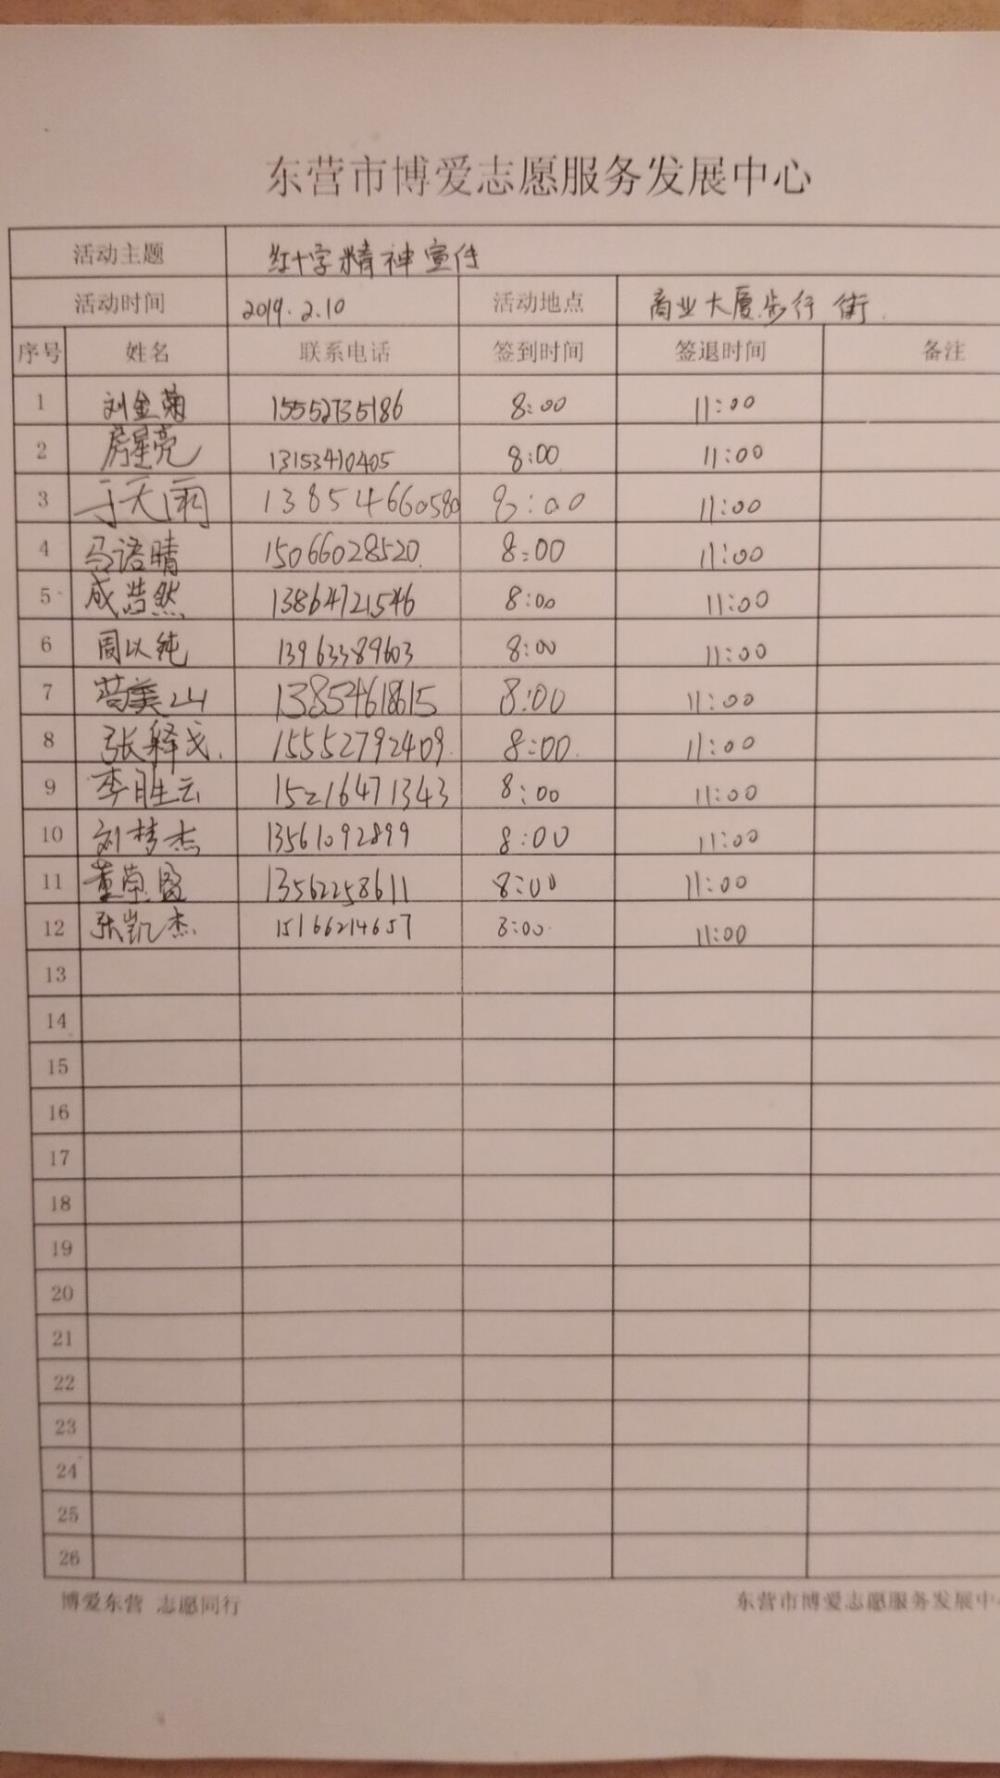 东营市博爱志愿服务发展中心
活动主题 红十字精神宣传
活动时间 2019.2.10 活动地点 商业大厦步行街
序号 姓名 联系电话 签到时间 签退时间 备注
1 刘金菊 15552735186 8:00 11:00
2 房星亮 13153410405 8:00 11:00
3 于天雨 13854660580 8:00 11:00
4 马语晴 15066028520 8:00 11:00
5 成浩然 13864721546 8:00 11:00
6 周以纯 13963389603 8:00 11:00
7 苟美山 13854618615 8:00 11:00
8 张释戈 15552792409 8:00 11:00
9 李胜云 15216471343 8:00 11:00
10 刘梦杰 13561092899 8:00 11:00
11 董荣盈 13562258611 8:00 11:00
12 张凯杰 15166214657 8:00 11:00
13
14
15
16
17
18
19
20
21
22
23
24
25
26
博爱东营 志愿同行 东营市博爱志愿服务发展中